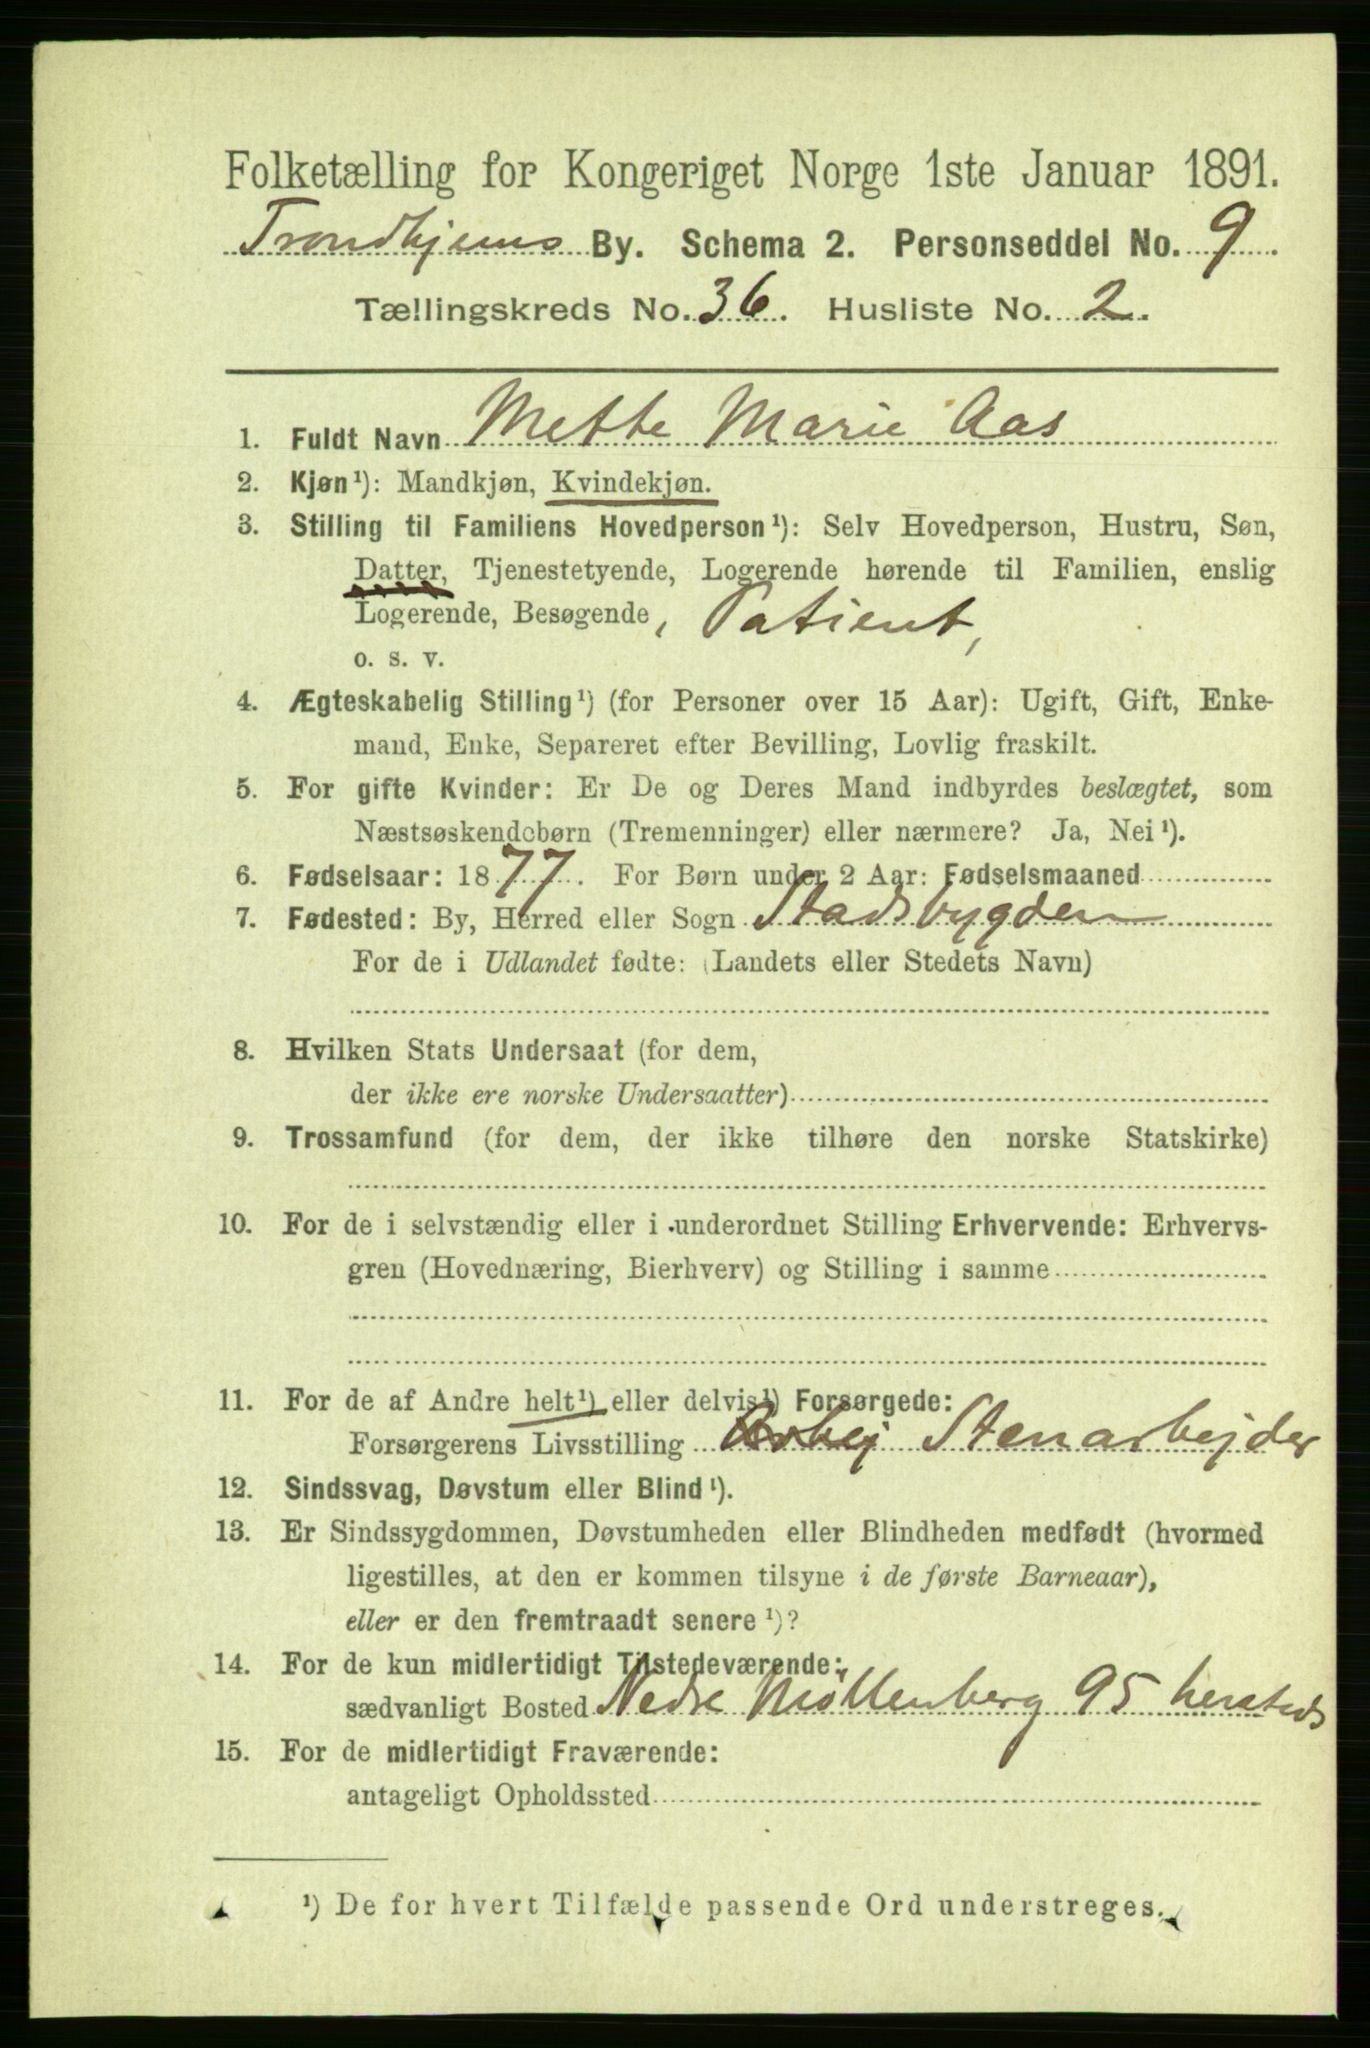 Folketælling for Kongeriget Norge 1ste Januar 1891.
Trondhjems By. Schema 2. Personseddel No. 9
Tællingskreds No. 36. Husliste No. 2.
1. Fuldt Navn Mette Marie Aas
2. Kjøn¹): Mandkjøn, Kvindekjøn.
3. Stilling til Familiens Hovedperson¹): Selv Hovedperson, Hustru, Søn,
Datter, Tjenestetyende, Logerende hørende til Familien, enslig
Logerende, Besøgende, Patient,
o. s. v.
4. Ægteskabelig Stilling¹) (for Personer over 15 Aar): Ugift, Gift, Enke-
mand, Enke, Separeret efter Bevilling, Lovlig fraskilt.
5. For gifte Kvinder: Er De og Deres Mand indbyrdes beslægtet, som
Næstsøskendebørn (Tremenninger) eller nærmere? Ja, Nei¹).
6. Fødselsaar: 1877. For Børn under 2 Aar: Fødselsmaaned
7. Fødested: By, Herred eller Sogn Stadsbygden
For de i Udlandet fødte: (Landets eller Stedets Navn)
8. Hvilken Stats Undersaat (for dem,
der ikke ere norske Undersaatter)
9. Trossamfund (for dem, der ikke tilhøre den norske Statskirke)
10. For de i selvstændig eller i underordnet Stilling Erhvervende: Erhvervs-
gren (Hovednæring, Bierhverv) og Stilling i samme
11. For de af Andre helt¹) eller delvis¹) Forsørgede:
Forsørgerens Livsstilling Arbej Stenarbejder
12. Sindssvag, Døvstum eller Blind¹).
13. Er Sindssygdommen, Døvstumheden eller Blindheden medfødt (hvormed
ligestilles, at den er kommen tilsyne i de første Barneaar),
eller er den fremtraadt senere¹)?
14. For de kun midlertidigt Tilstedeværende:
sædvanligt Bosted Nedre Møllenberg 95 hersteds
15. For de midlertidigt Fraværende:
antageligt Opholdssted
¹) De for hvert Tilfælde passende Ord understreges.